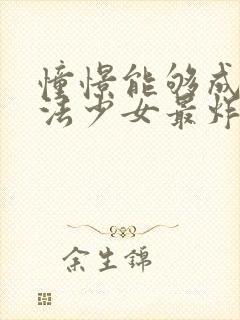 憧憬能够成
法少女最炸
余生锦